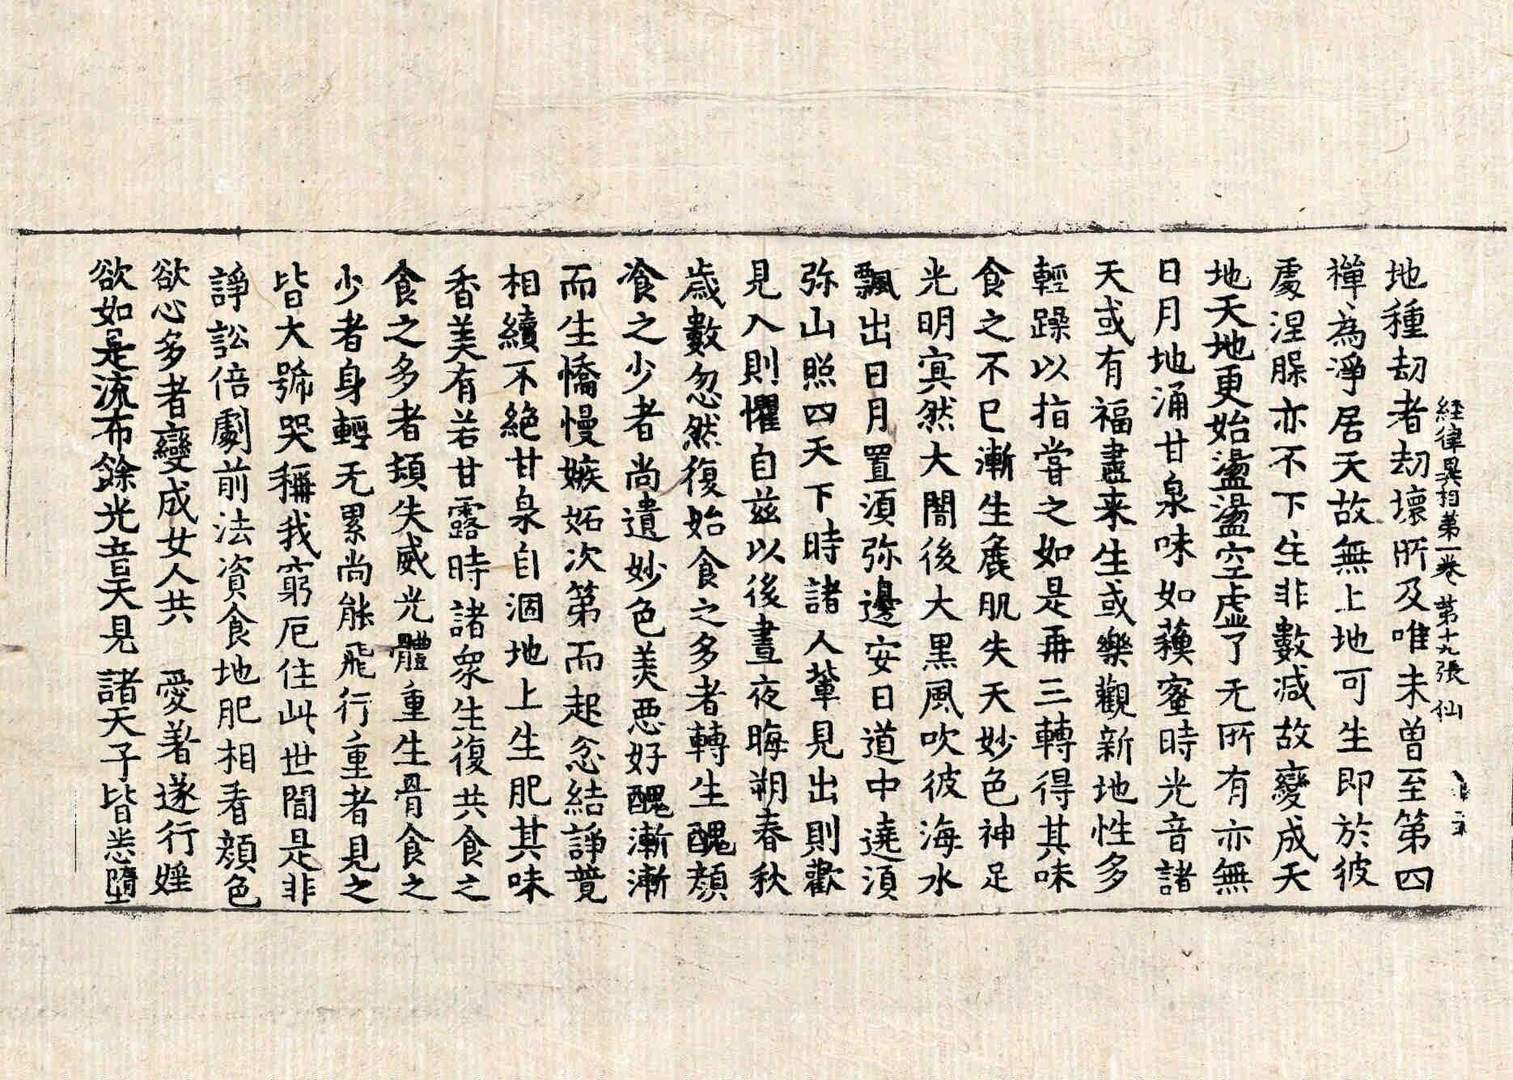 経律異相第一卷 第十九張 仙
地種劫者劫壞所及唯未曾至第四
禪為淨居天故無上地可生即於彼
處涅槃亦不下生非數減故變成天
地天地更始盪盪空虛了无所有亦無
日月地涌甘泉味如蘓蜜時光音諸
天或有福盡来生或樂觀新地性多
輕躁以指甞之如是再三轉得其味
食之不已漸生麁肌失天妙色神足
光明冥然大闇後大黒風吹彼海水
飄出日月置湏弥邊安日道中遶湏
弥山照四天下時諸人軰見出則歡
見入則懼自兹以後晝夜晦朔春秋
歳數忽然復始食之多者轉生醜顔
飡之少者尚遺妙色美悪好醜漸漸
而生憍慢嫉妬次第而起忿結諍競
相續不絶甘泉自涸地上生肥其味
香美有若甘露時諸衆生復共食之
食之多者頿失威光體重生骨食之
少者身輕无累尚能飛行重者見之
皆大號哭稱我窮厄住此世間是非
諍訟倍劇前法資食地肥相看顔色
欲心多者變成女人共 愛著遂行婬
欲如是流布餘光音天見 諸天子皆恚墮